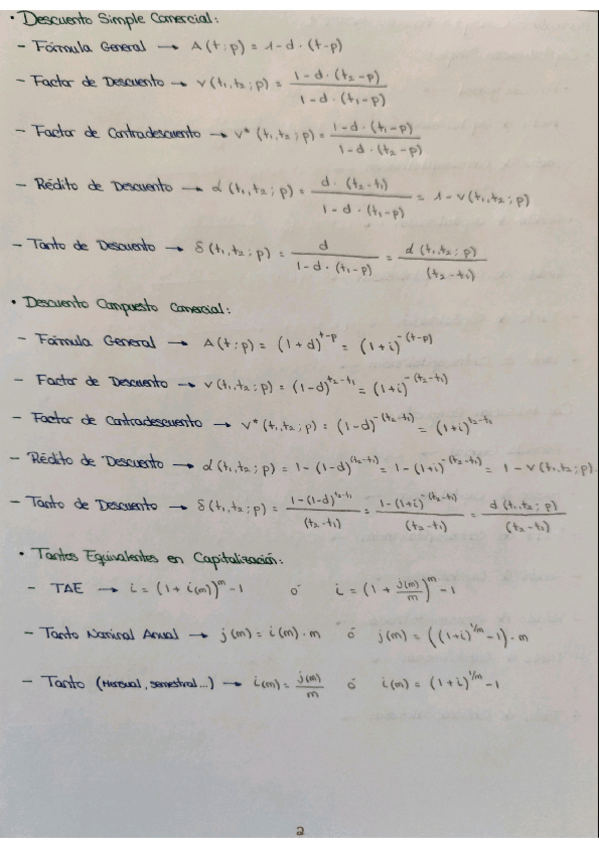 • Descuento Simple Comercial:
– Fórmula General → A(t;p) = 1-d·(t-p)
– Factor de Descuento → v(t₁,t₂;p) = (1-d·(t₂-p))/(1-d·(t₁-p))
– Factor de Contradescuento → v*(t₁,t₂;p) = (1-d·(t₁-p))/(1-d·(t₂-p))
– Rédito de Descuento → d(t₁,t₂;p) = (d·(t₂-t₁))/(1-d·(t₁-p)) = 1-v(t₁,t₂;p)
– Tanto de Descuento → δ(t₁,t₂;p) = d/(1-d·(t₁-p)) = d(t₁,t₂;p)/(t₂-t₁)
• Descuento Compuesto Comercial:
– Fórmula General → A(t;p) = (1+d)^(t-p) = (1+i)^-(t-p)
– Factor de Descuento → v(t₁,t₂;p) = (1-d)^(t₂-t₁) = (1+i)^-(t₂-t₁)
– Factor de Contradescuento → v*(t₁,t₂;p) = (1-d)^-(t₂-t₁) = (1+i)^(t₂-t₁)
– Rédito de Descuento → d(t₁,t₂;p) = 1-(1-d)^(t₂-t₁) = 1-(1+i)^-(t₂-t₁) = 1-v(t₁,t₂;p).
– Tanto de Descuento → δ(t₁,t₂;p) = (1-(1-d)^(t₂-t₁))/(t₂-t₁) = (1-(1+i)^-(t₂-t₁))/(t₂-t₁) = d(t₁,t₂;p)/(t₂-t₁)
• Tantos Equivalentes en Capitalización:
– TAE → i = (1+i(m))^m -1 ó i = (1+j(m)/m)^m -1
– Tanto Nominal Anual → j(m) = i(m)·m ó j(m) = ((1+i)^(1/m) -1)·m
– Tanto (Mensual, semestral...) → i(m) = j(m)/m ó i(m) = (1+i)^(1/m) -1
2